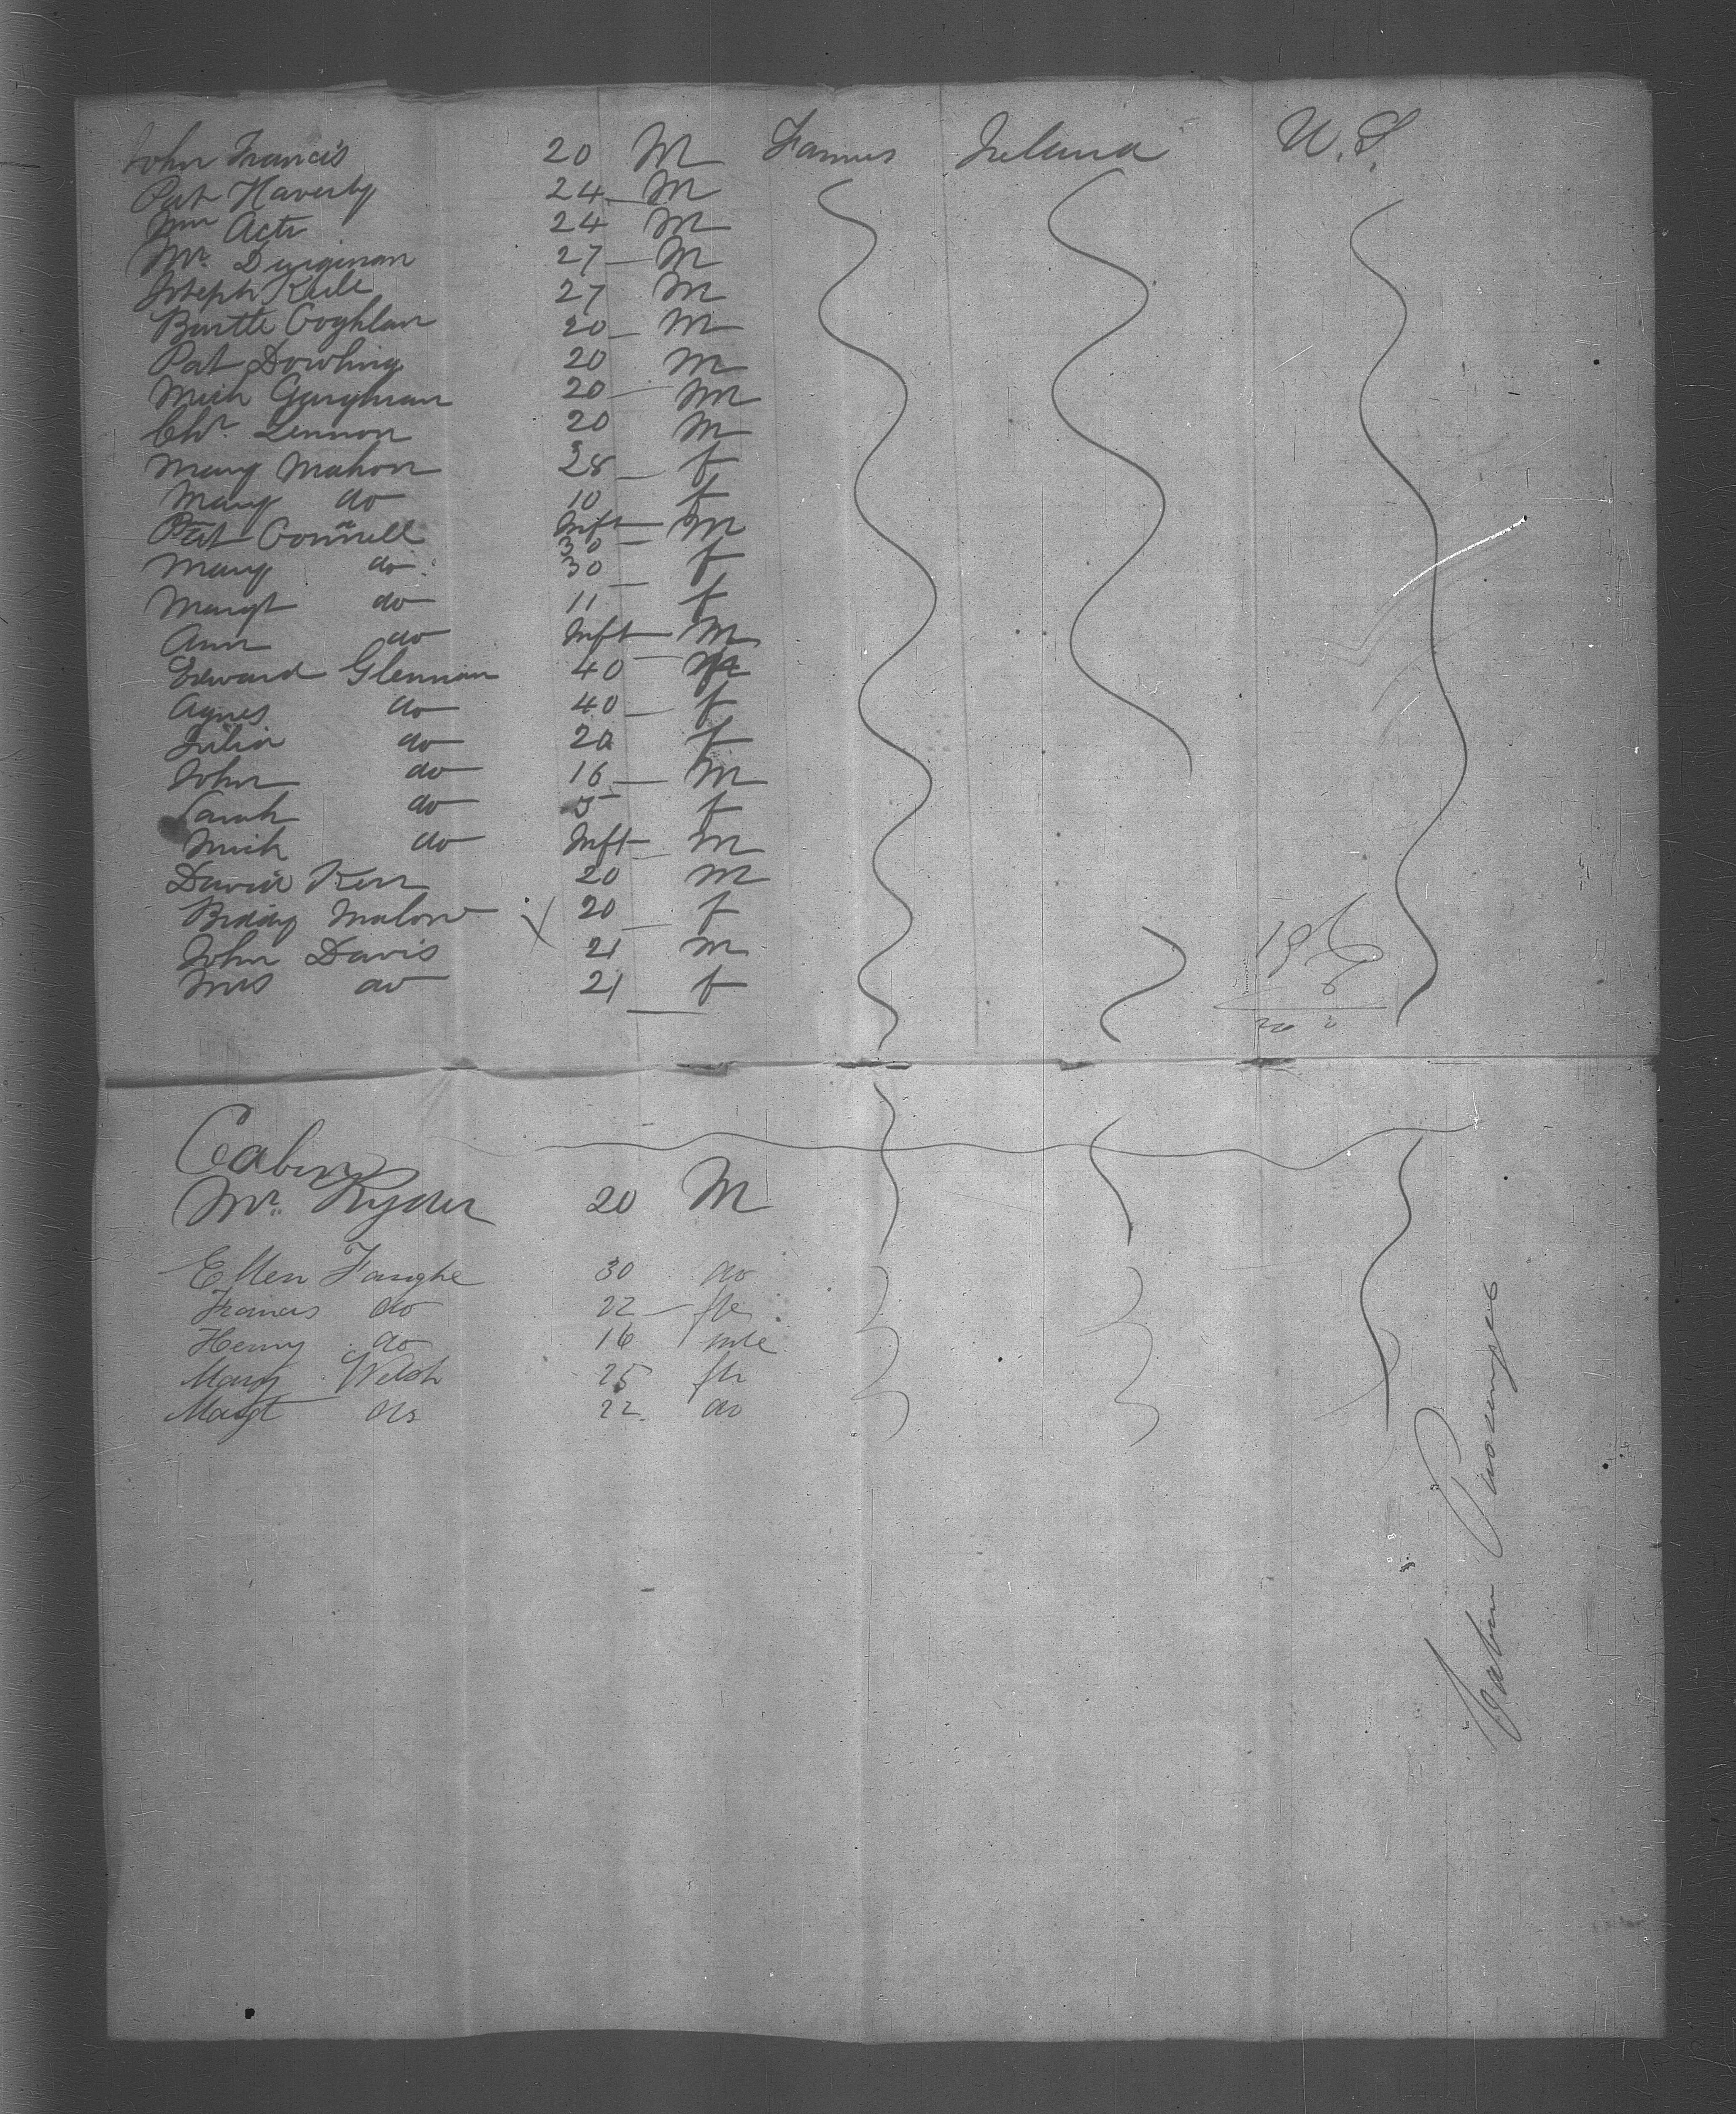 John Francis 20 M Farmer Ireland U.S.
Pat Haverty 24 M
Wm 24 M
Mr. 27 M
Joseph 27 M
Bartle Coghlan 20 M
Pat Dowling 20 M
Mich 20 M
Chr. Lennon 20 M
Mary Mahon 28 f
Mary do 10 f
Inft M
Pat Connell 30
Mary do 30 f
Margt do 11 f
Ann do Inft M
Edward Glennan 40 M
Agnes do 40 f
Julia do 20 f
John do 16 M
Sarah do 5 f
Mich do Inft M
David Kerr 20 M
Biddy Malone X 20 f
John Davis 21 M
Mrs do 21 f
Cabin
Mr. Ryder 20 M
Ellen 30 do
Frances do 22 fe
Henry do 16 mle
Mary Welsh 25 fe
Margt do 22 do
Cabin Passenges